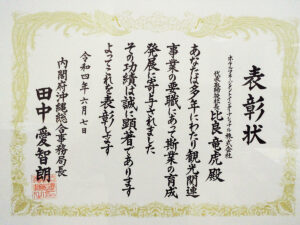 表彰状
代表取締役社長 比良竜虎 殿
あなたは多年にわたり観光関連
事業の要職にあって斯業の育成
発展に寄与されました
その功績は誠に顕著であります
よってこれを表彰します
令和四年六月七日
内閣府沖縄総合事務局長
田中愛智朗